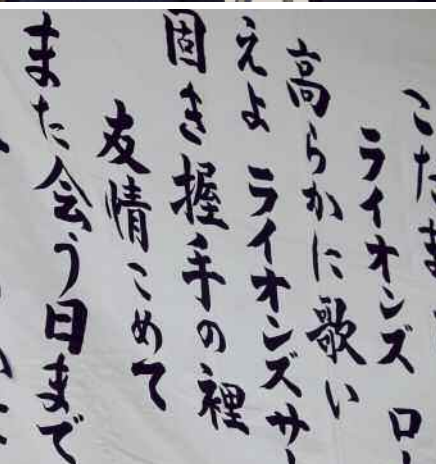 こだま
ライオンズ ロー
高らかに歌い
えよ ライオンズ サー
固き握手の裡
友情こめて
また会う日まで